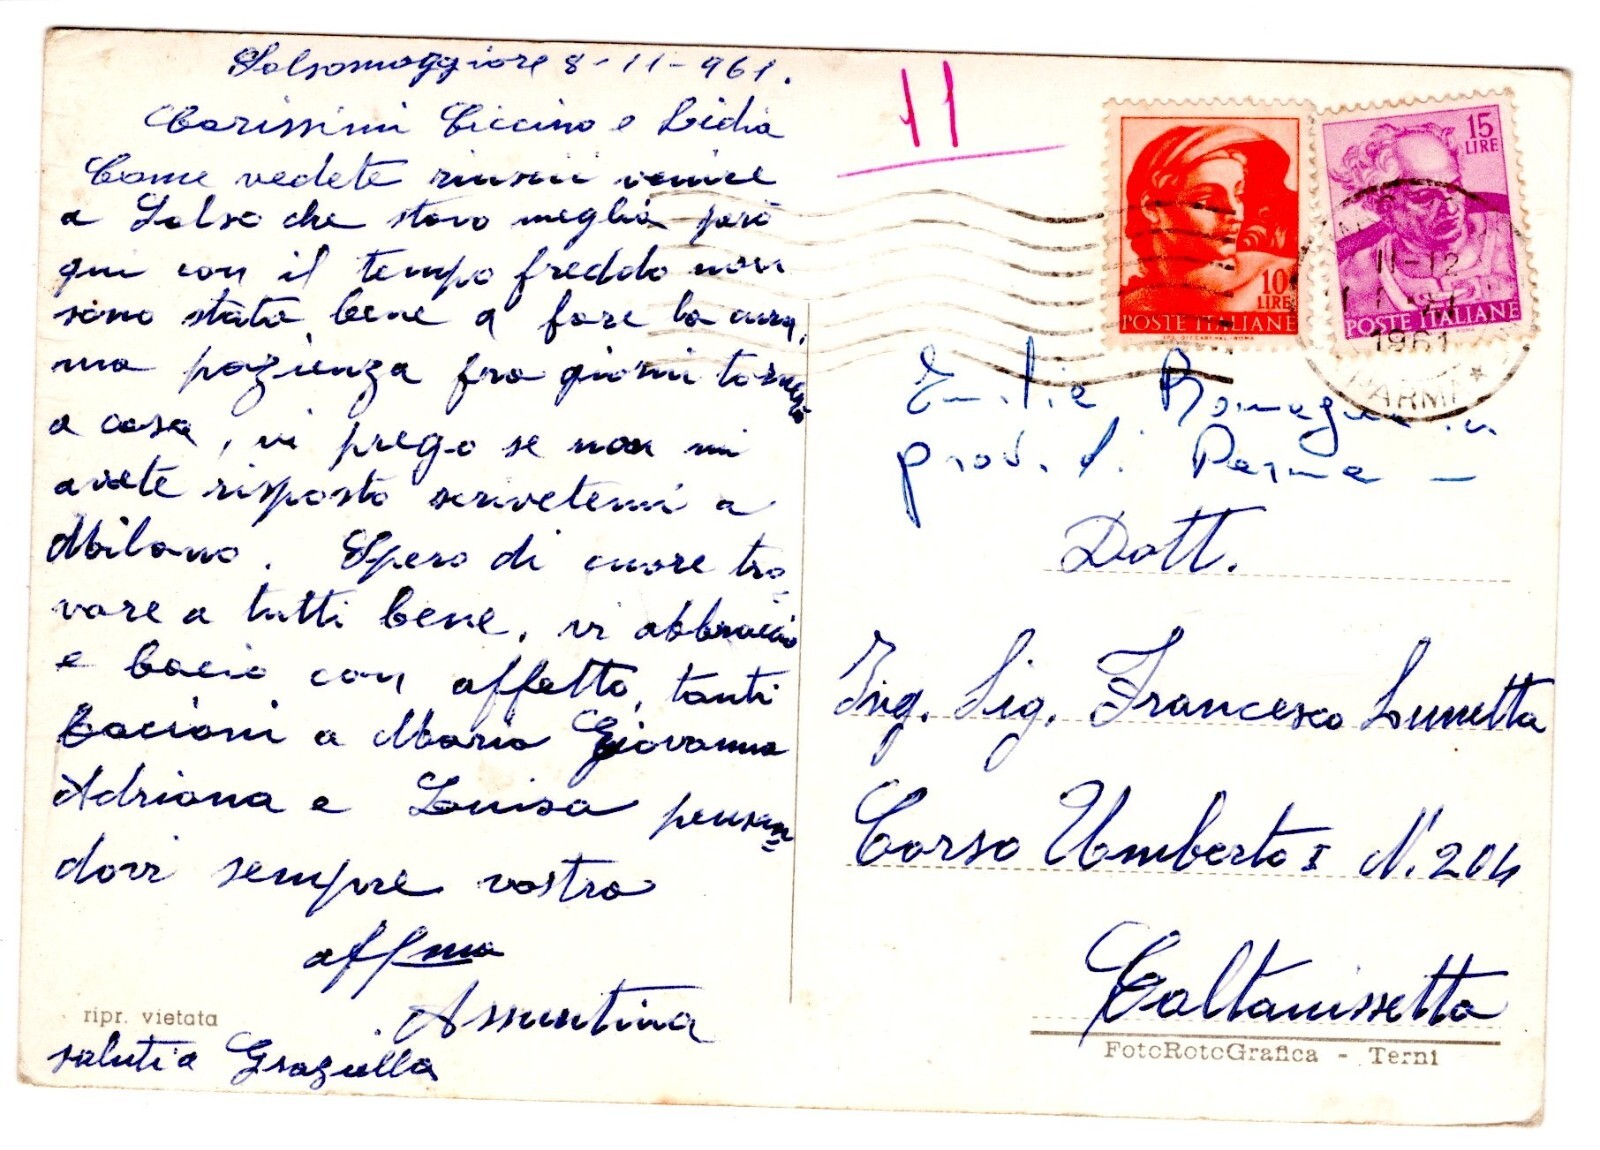 Salsomaggiore 8-11-961.
Carissimi Ciccino e Lidia
Come vedete riuscii venire
a Salso che stavo meglio però
qui con il tempo freddo non
sono stata bene a fare la cura,
ma pazienza fra giorni tornerò
a casa, vi prego se non mi
avete risposto scrivetemi a
Milano. Spero di cuore tro-
vare a tutti bene, vi abbraccio
e bacio con affetto, tanti
bacioni a Maria Giovanna
Adriana e Louisa pensan
dovi sempre vostra
aff/ma
Assuntina
ripr. vietata
saluti a Graziella
11
10
LIRE
POSTE ITALIANE
15
LIRE
POSTE ITALIANE
11-12
1961
PARMA
Emilia Romagna
prov. di Parma -
Dott.
Ing. Sig. Francesco Lunetta
Corso Umberto I N. 204
Caltanissetta
FotoRotoGrafica - Terni